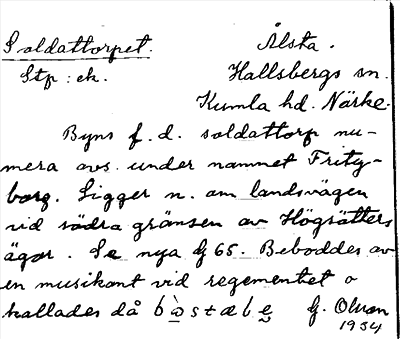 Soldattorpet. Ålsta.
Stp: ek. Hallsbergs sn.
Kumla hd. Närke.
Byns f.d. soldattorp nu-
mera avs. under namnet Frity-
borg. Ligger n. om landsvägen
vid södra gränsen av Högsätters
ägor. Se nya G 65. Beboddes av
en musikant vid regementet o
kallades då bòstæbe G. Olson
1934